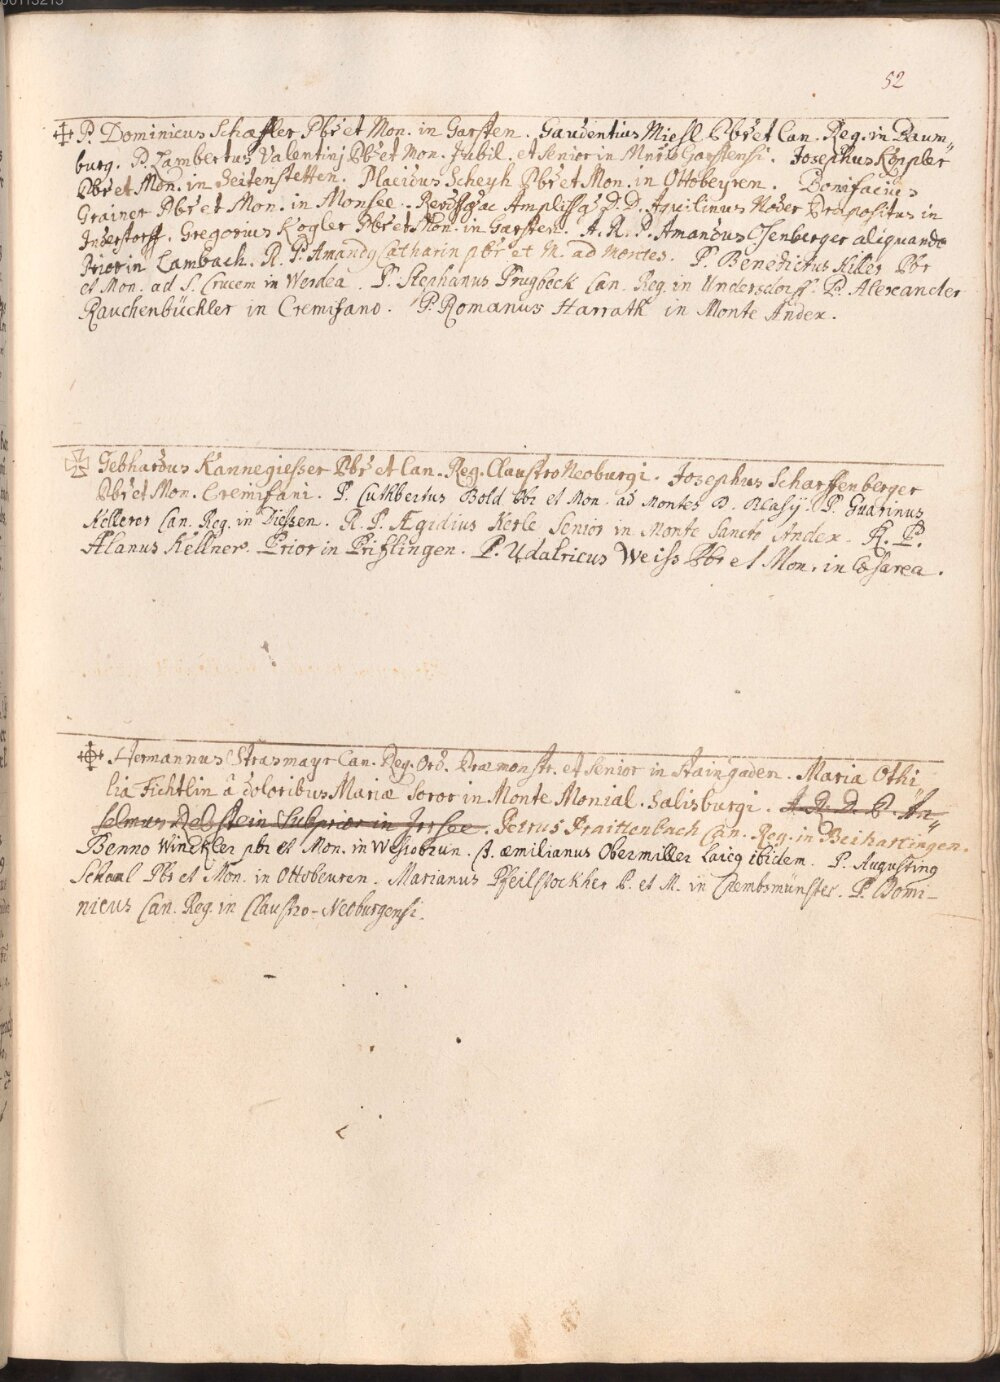 52
P. Dominicus Schaffler Pbr et Mon. in Garsten. Gaudentius Miesl Pbr et Can. Reg. in Baum„
burg. P. Lambertus Valentinj Pbr et Mon. Jubil. et Senior in Mnrio Garstensi. Josephus Köppler
Pbr et Mon. in Seitenstetten. Placidus Scheyh Pbr et Mon. in Ottobeyren. Bonifacius
Grainer Pbr et Mon. in Monsee. Revdssq ac Amplissq D. D. Aquilinus Præpositus in
Inderstorff. Gregorius Kogler Pbr et Mon. in Garsten. A. R. P. Amandus Isenberger aliquando
Prior in Lambach. R. P. Amandq Catharin pbr et M. ad Montes. P. Benedictus Hiller Pbr
et Mon. ad S. Crucem in Werdea. P. Stephanus Prugbeck Can. Reg. in Undersdorff. P. Alexander
Rauchenbüchler in Cremifano. P. Romanus Harrath in Monte Andex.
Gebhardus Kannegiesser Pbr et Can. Reg. Claustro Neoburgi. Josephus Scharffenberger
Pbr et Mon. Cremifani. P. Cuthbertus Bold Pbr et Mon. ad Montes P. Guarinus
Kellerer Can. Reg. in Diessen. R. P. Ægidius Kerle Senior in Monte Sancto Andex. R. P.
Alanus Kellner. Prior in Prifling̅en. P. Udalricus Weiss Pbr et Mon. in
Hermannus Strasmayr Can. Reg. Ord. Præmonstr. et Senior in Staingaden. Maria Othi„
lia Fichtlin â doloribus Mariæ Soror in Monte Monial. Salisburgi. A. R. D. P. An„
selmus Subprior in Irsee. Petrus Fraittenbach Can. Reg. in Beihartingen.
Benno Winckler pbr et Mon. in Wessobrun. F. æmilianus Obermiller Laicq ibidem. P. Augustinq
Pbr et Mon. in Ottobeuren. Marianus Pfeilstockher P. et M. in Crembsmünster. P. Domi-
nicus Can. Reg. in Claustro-Neoburgensi.